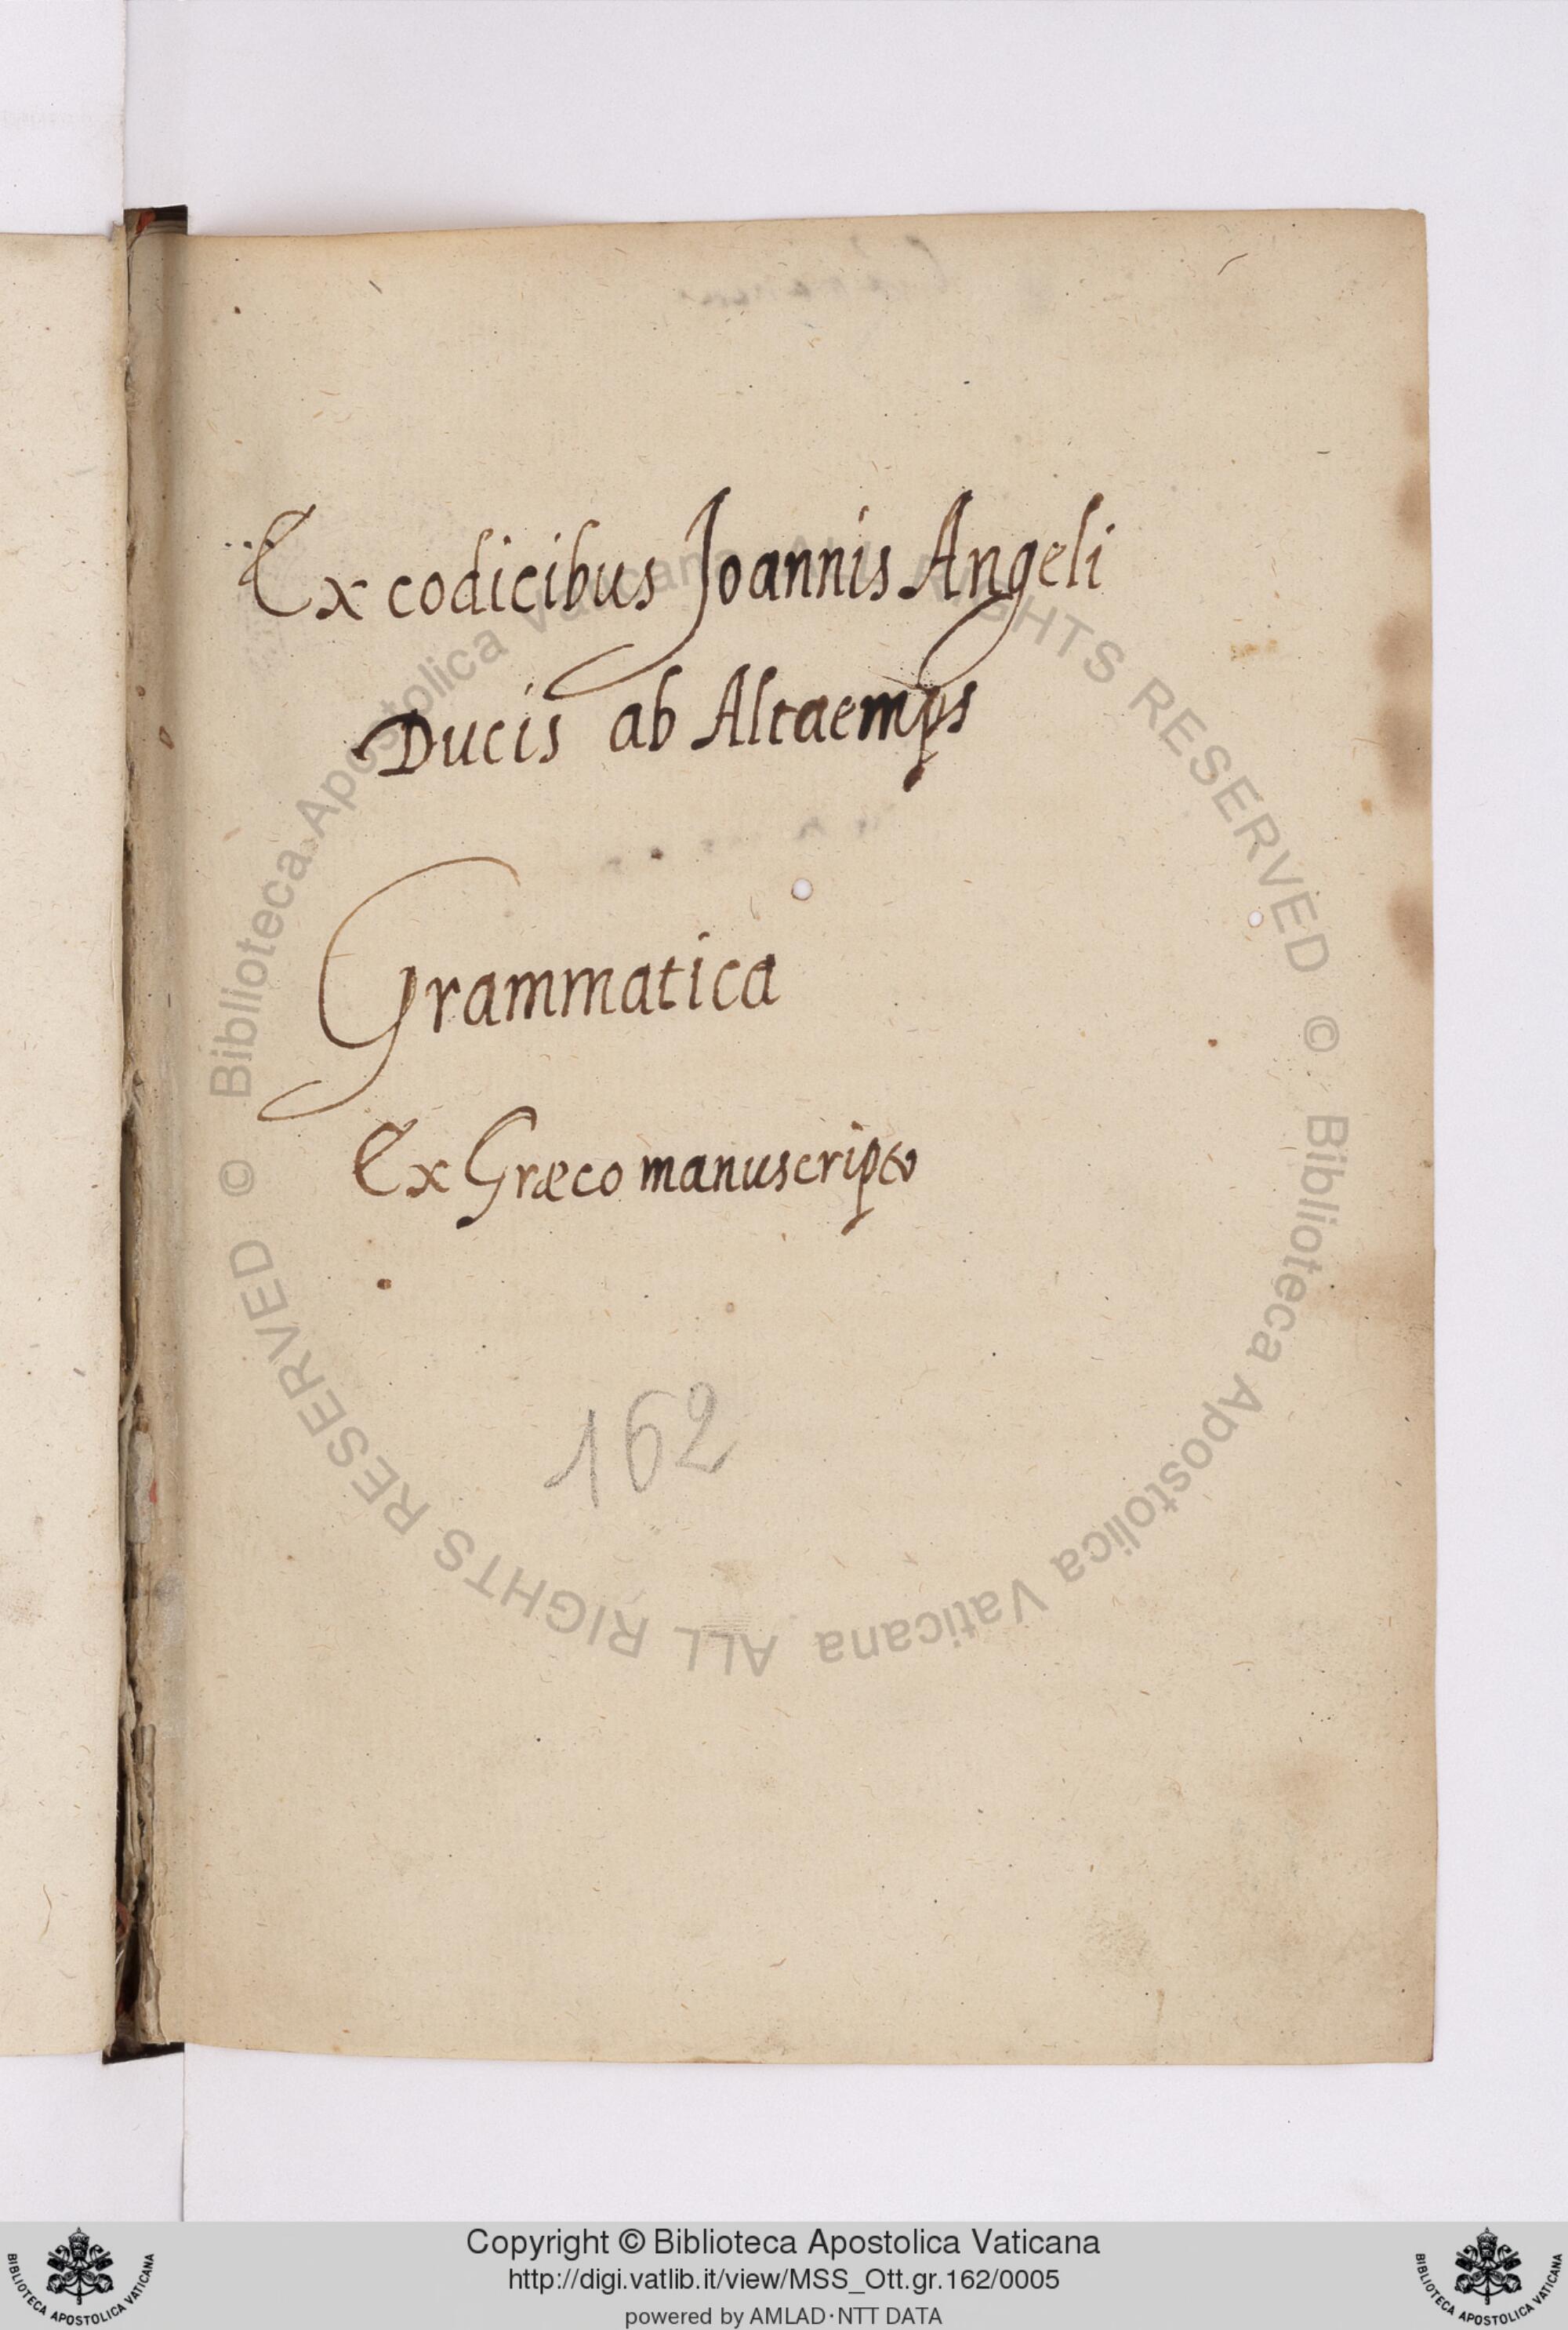 Ex codicibus Joannis Angeli
Ducis ab Altaemps
Grammatica
Ex Græco manuscripto
162
© Biblioteca Apostolica Vaticana ALL RIGHTS RESERVED
© Biblioteca Apostolica Vaticana ALL RIGHTS RESERVED
Copyright © Biblioteca Apostolica Vaticana
http://digi.vatlib.it/view/MSS_Ott.gr.162/0005
powered by AMLAD·NTT DATA
BIBLIOTECA APOSTOLICA VATICANA
BIBLIOTECA APOSTOLICA VATICANA